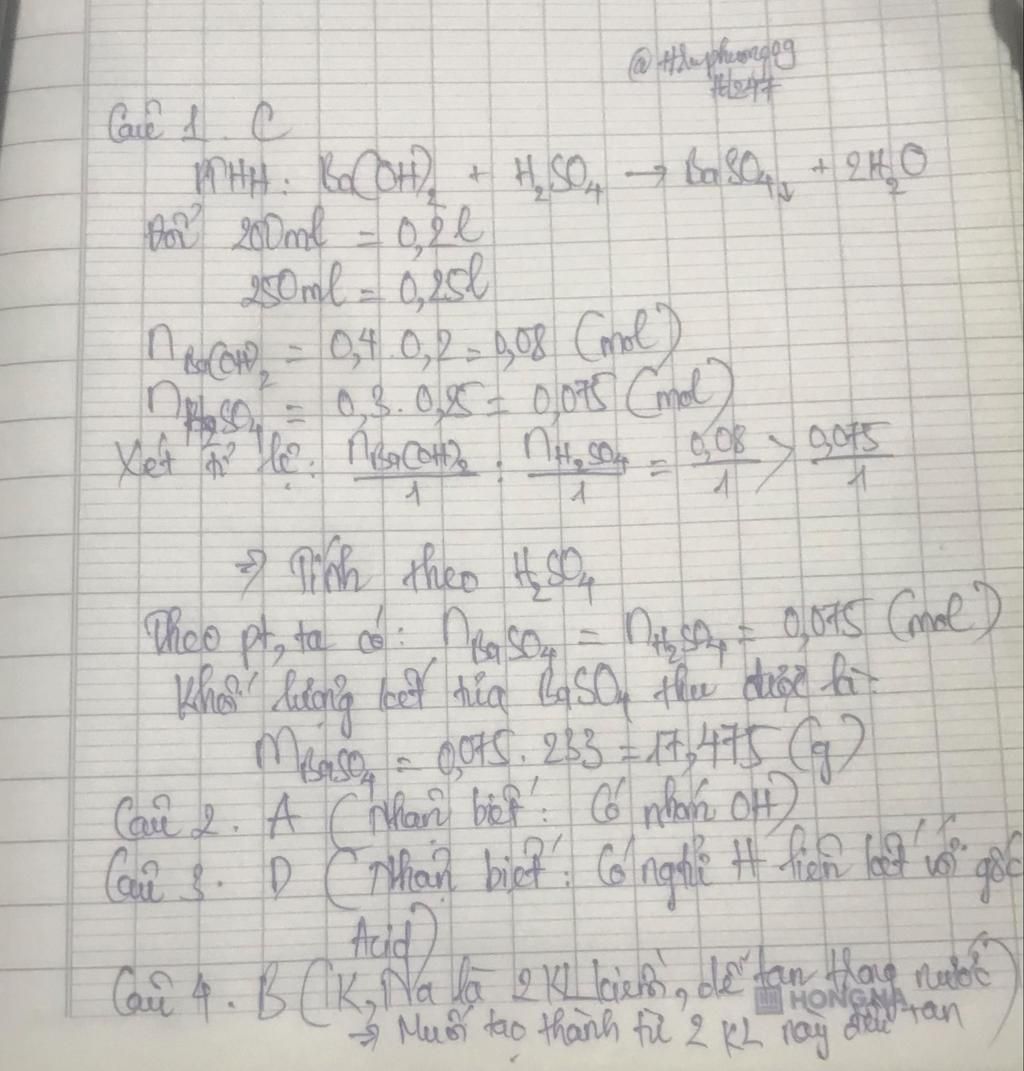 @thuphuong09
H247
Câu 1. C
PTHH: Ba(OH)₂ + H₂SO₄ → BaSO₄↓ + 2H₂O
Đổi 200ml = 0,2l
250ml = 0,25l
n Ba(OH)₂ = 0,4 . 0,2 = 0,08 (mol)
n H₂SO₄ = 0,3 . 0,25 = 0,075 (mol)
Xét tỉ lệ: n Ba(OH)₂/1 : n H₂SO₄/1 = 0,08/1 > 0,075/1
⇒ Tính theo H₂SO₄
Theo pt, ta có: n BaSO₄ = n H₂SO₄ = 0,075 (mol)
Khối lượng kết tủa BaSO₄ thu được là:
m BaSO₄ = 0,075 . 233 = 17,475 (g)
Câu 2. A (Nhận biết: Có nhóm OH)
Câu 3. D (Nhận biết: Có nghtử H liên kết với gốc
Acid)
Câu 4. B (K, Na là 2 KL kiềm, dễ tan trong nước)
HONGNA
⇒ Muối tạo thành từ 2 KL này đều tan